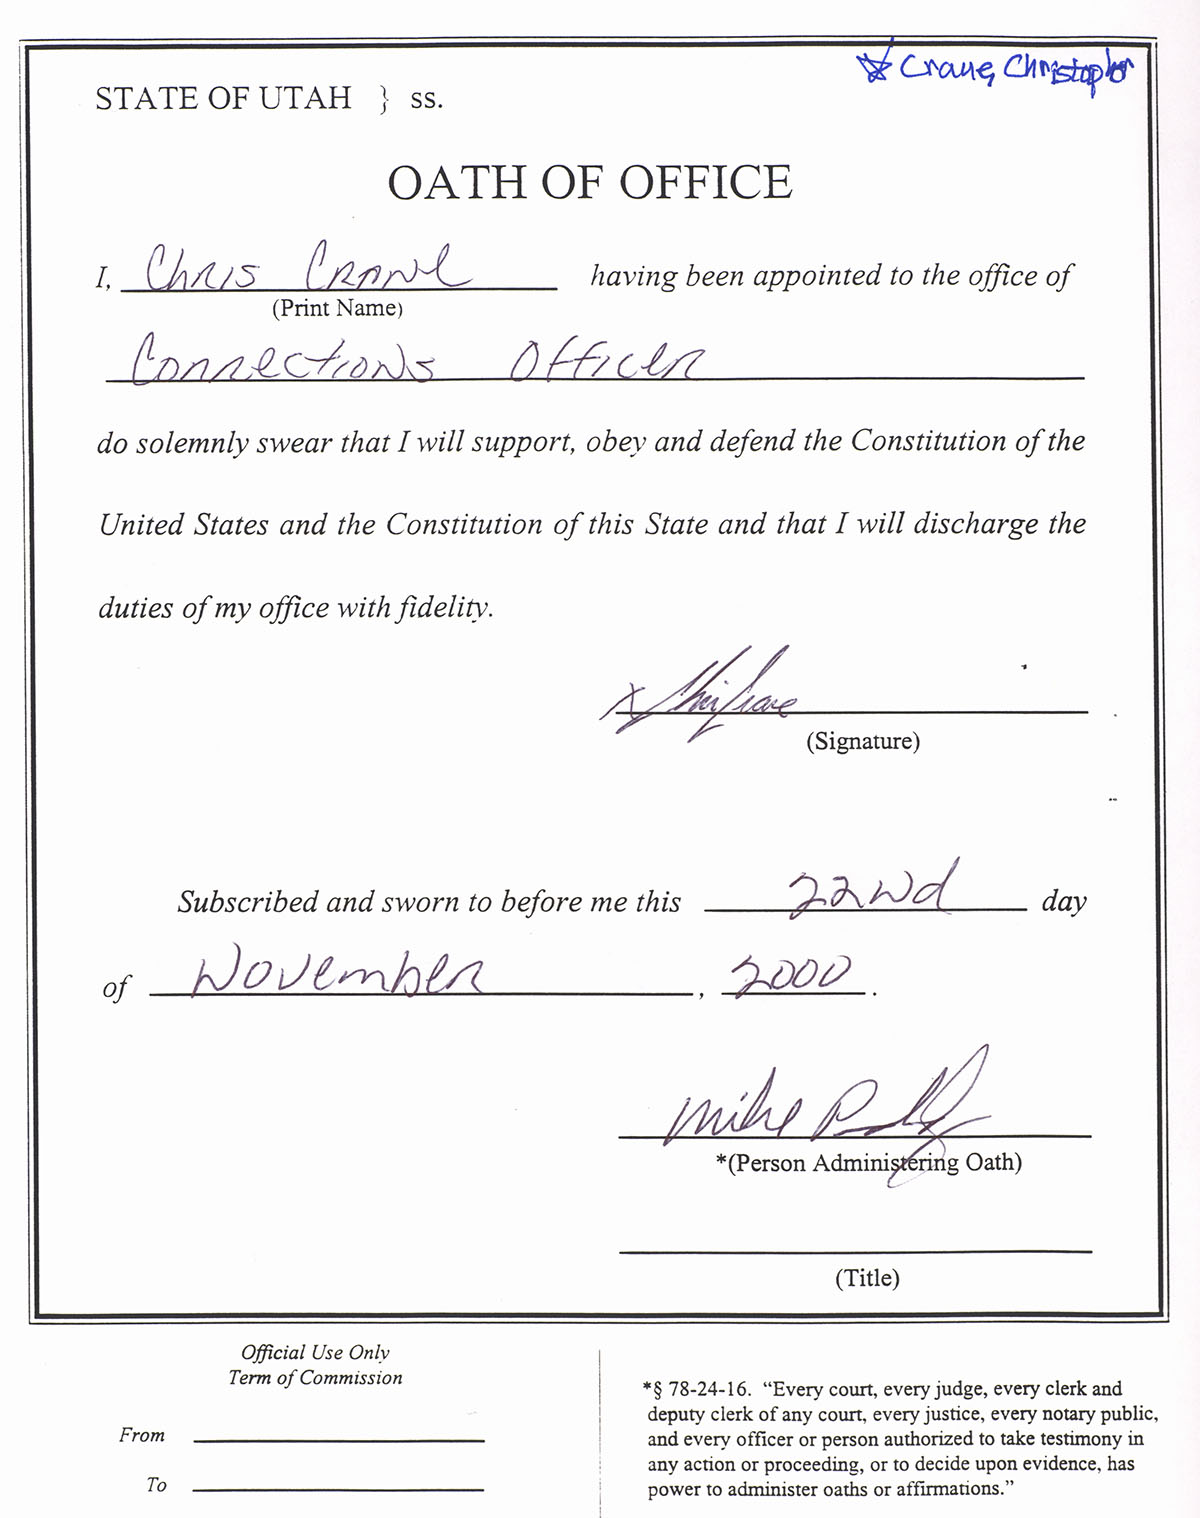 Crane, Christopher
STATE OF UTAH } ss.
OATH OF OFFICE
I, Chris Crane having been appointed to the office of
(Print Name)
Corrections Officer
do solemnly swear that I will support, obey and defend the Constitution of the
United States and the Constitution of this State and that I will discharge the
duties of my office with fidelity.
x Chris Crane
(Signature)
Subscribed and sworn to before me this 22nd day
of November, 2000.
Mike
*(Person Administering Oath)
(Title)
Official Use Only
Term of Commission
From
To
*§ 78-24-16. “Every court, every judge, every clerk and
deputy clerk of any court, every justice, every notary public,
and every officer or person authorized to take testimony in
any action or proceeding, or to decide upon evidence, has
power to administer oaths or affirmations.”